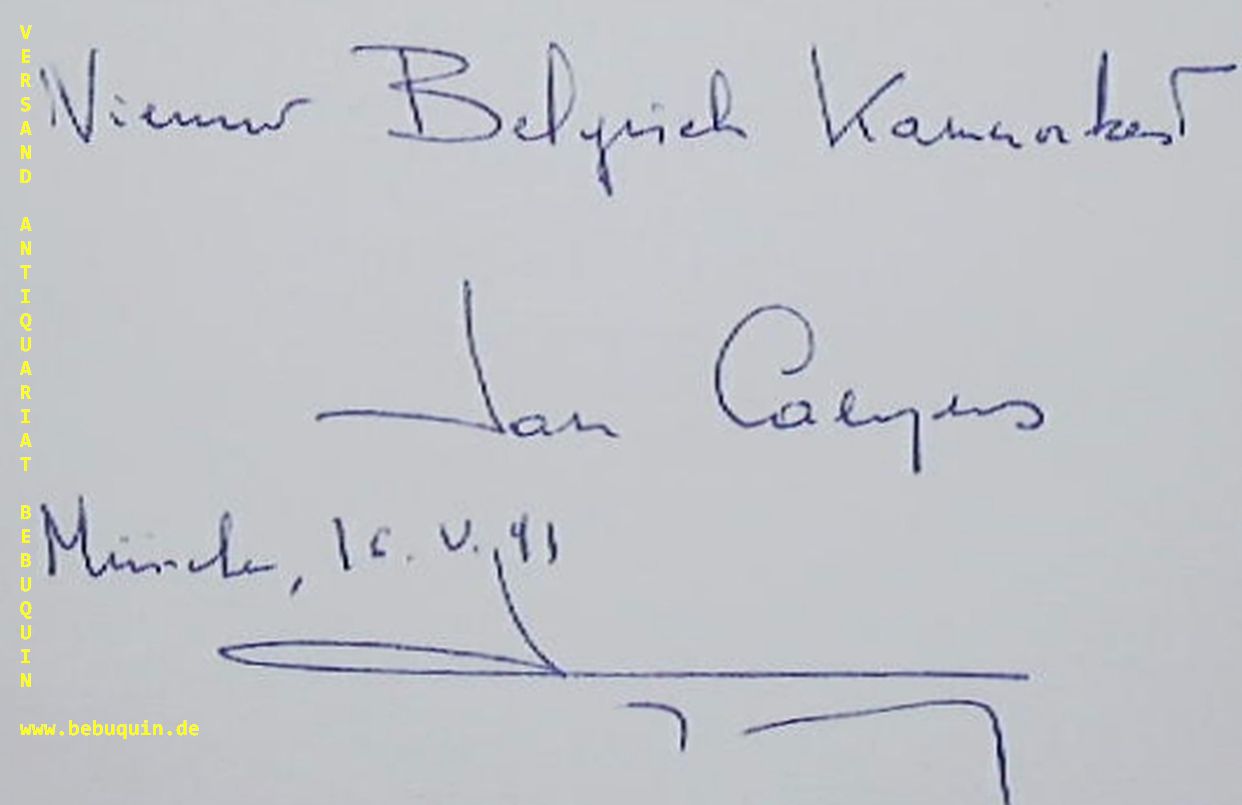 Nieuw Belgisch Kamerorkest
Jan Caeyers
München, 16. V. 91
VERSAND ANTIQUARIAT BEBUQUIN
www.bebuquin.de